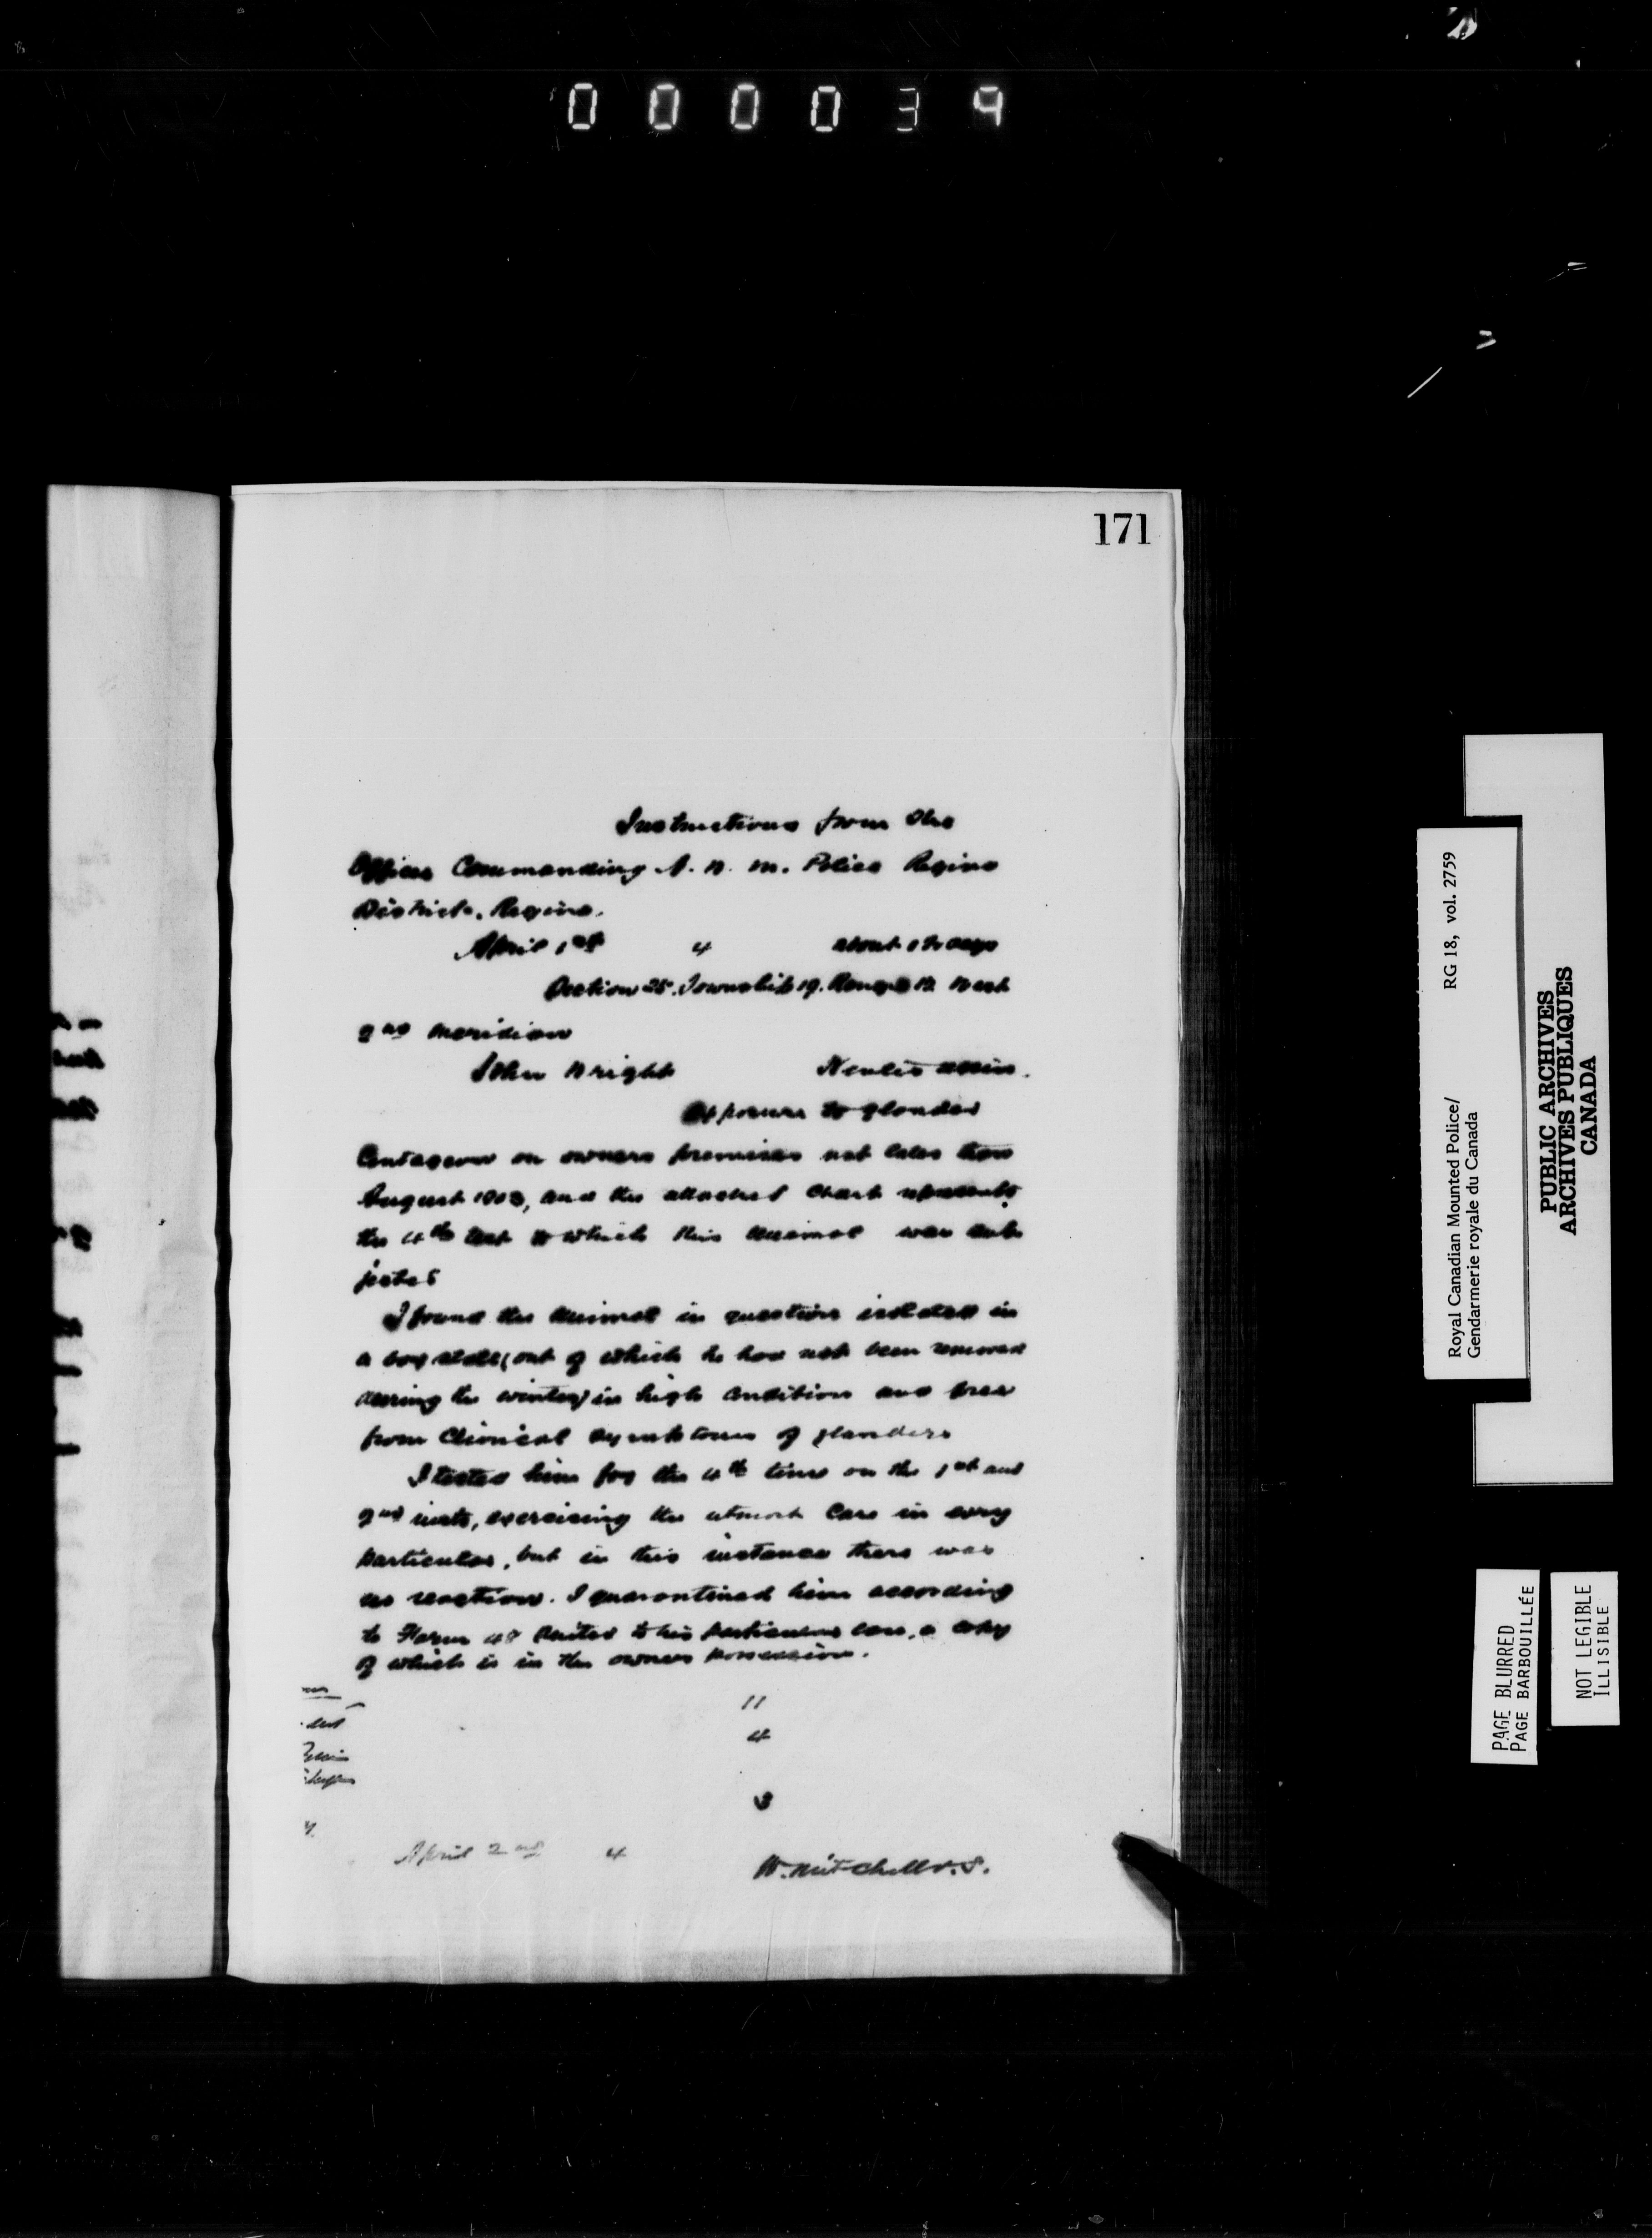 000039
171
Instructions from the
Officer Commanding N. W. M. Police Regina
District, Regina.
April 1st 4 about days
Section 25. Township 19. Range 19. West
2nd Meridian
John Wright
Exposure to glanders
Contagion on owners premises not later than
August 1903, and the attached chart represents
the 4th test to which this animal was sub
jected
I found the animal in question isolated in
a box stall (out of which he has not been removed
during the winter) in high condition and free
from Clinical symptoms of glanders
I tested him for the 4th time on the 1st and
2nd insts, exercising the utmost care in every
particular, but in this instance there was
no reaction. I quarantined him according
to Form 48 suited to his particular case, a copy
of which is in the owners possession.
11
4
3
April 2nd 4
W. Mitchell V.S.
Royal Canadian Mounted Police/ RG 18, vol. 2759
Gendarmerie royale du Canada
PUBLIC ARCHIVES
ARCHIVES PUBLIQUES
CANADA
PAGE BLURRED
PAGE BARBOUILLÉE
NOT LEGIBLE
ILLISIBLE